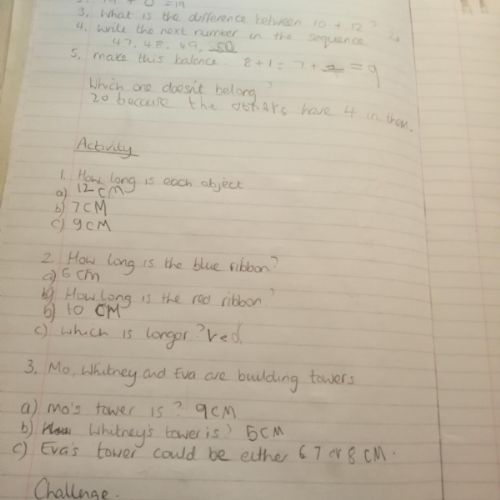 + 0 = 19
3. What is the difference between 10 + 12?
4. write the next number in the sequence
47, 48, 49, 50
5. make this balance. 8+1 = 7+2 = 9
Which one doesn't belong?
20 because the others have 4 in them.
Activity
1. How long is each object
a) 12 CM
b) 7 CM
c) 9 CM
2. How long is the blue ribbon?
a) 6 cm
b) How long is the red ribbon?
b) 10 CM
c) which is longer? red.
3. Mo, Whitney and Eva are building towers
a) Mo's tower is? 9 CM
b) Whitney's tower is? 5 CM
c) Eva's tower could be either 6 7 or 8 CM.
Challenge.